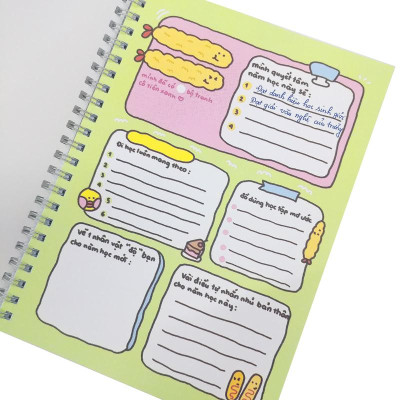 mình quyết tâm
năm học này sẽ:
1 Đạt danh hiệu học sinh giỏi
2 Đạt giải văn nghệ của trường
3
4
mình để cô
cỏ tiền
Đi học luôn mang theo:
1
2
3
4
5
6
đồ dùng học tập mơ ước
Vẽ 1 nhân vật "độ" bạn
cho năm học mới:
Vài điều tự nhắn nhủ bản thân
cho năm học này: